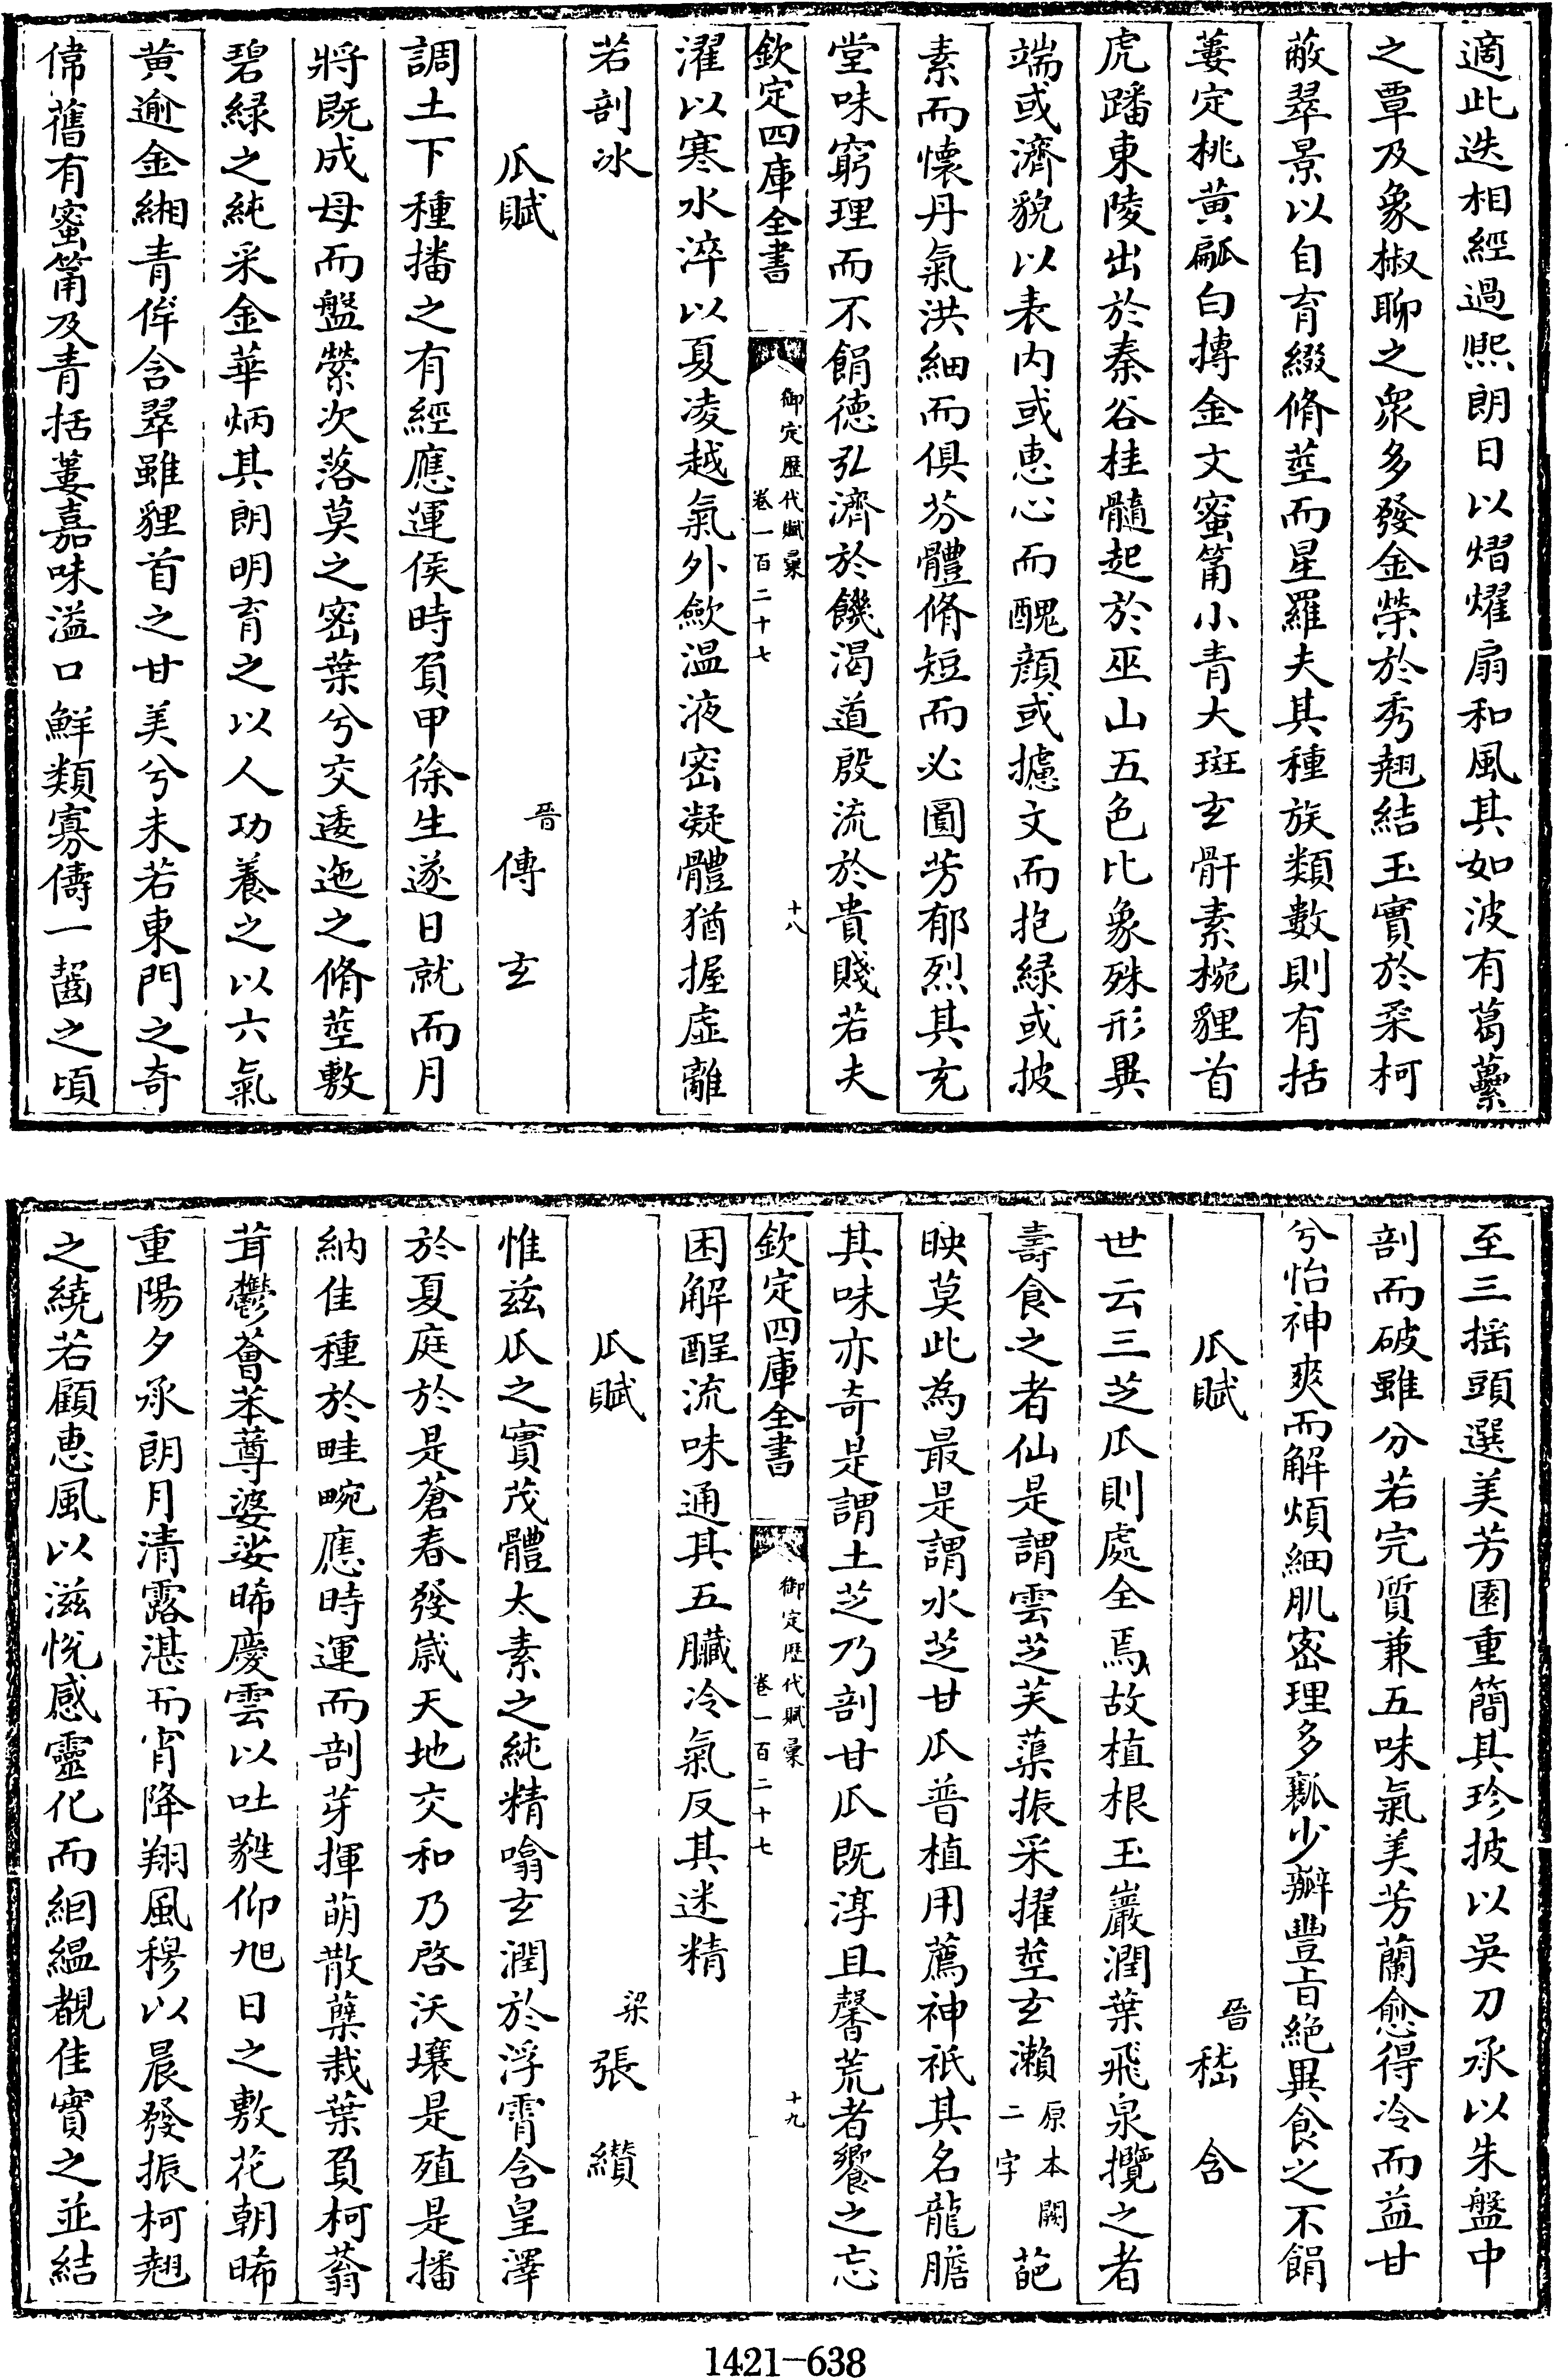 適此迭相經過熙朗日以熠燿扇和風其如波有葛虆
之覃及象椒聊之衆多發金榮於秀翹結玉實於柔柯
蔽翠景以自育綴脩莖而星羅夫其種族類數則有括
蔞定桃黄㼐白摶金文蜜筩小青大斑玄骭素椀貍首
虎蹯東陵出於秦谷桂髓起於巫山五色比象殊形異
端或濟貌以表内或惠心而醜顔或攄文而抱緑或披
素而懷丹氣洪細而俱芬體脩短而必圓芳郁烈其充
堂味窮理而不餇德弘濟於饑渴道殷流於貴賤若夫
欽定四庫全書
御定歴代賦彙
卷一百二十七
十八
濯以寒水淬以夏凌越氣外歛温液密凝體猶握虚離
若剖冰
瓜賦
晉傅玄
調土下種播之有經應運侯時負甲徐生遂日就而月
將既成母而盤縈次落莫之密葉兮交逶迤之脩莖敷
碧緑之純采金華炳其朗明育之以人功養之以六氣
黄逾金緗青侔含翠雖貍首之甘美兮未若東門之奇
偉舊有蜜筩及青括蔞嘉味溢口鮮類寡儔一齧之頃
至三揺頭選美芳園重簡其珍披以吳刀承以朱盤中
剖而破雖分若完質兼五味氣美芳蘭愈得冷而益甘
兮怡神爽而解煩細肌密理多瓤少瓣豐旨絶異食之不餇
瓜賦
晉嵇含
世云三芝瓜則處全焉故植根玉巖潤葉飛泉攬之者
壽食之者仙是謂雲芝芙蕖振采擢莖玄瀨原本闕二字葩
映莫此為最是謂水芝甘瓜普植用薦神祇其名龍膽
其味亦奇是謂土芝乃剖甘瓜既淳且馨荒者饗之忘
欽定四庫全書
御定歴代賦彙
卷一百二十七
十九
困解酲流味通其五臓冷氣反其迷精
瓜賦
梁張纘
惟兹瓜之實茂體太素之純精噏玄潤於浮霄含皇澤
於夏庭於是蒼春發嵗天地交和乃啓沃壤是殖是播
納佳種於畦畹應時運而剖芽揮萌散蘖栽葉負柯蓊
茸鬱薈苯䔿婆娑晞慶雲以吐蕤仰旭日之敷花朝晞
重陽夕承朗月清露湛而宵降翔風穆以晨發振柯翹
之繞若顧惠風以滋恱感靈化而絪緼覩佳實之並結
1421-638